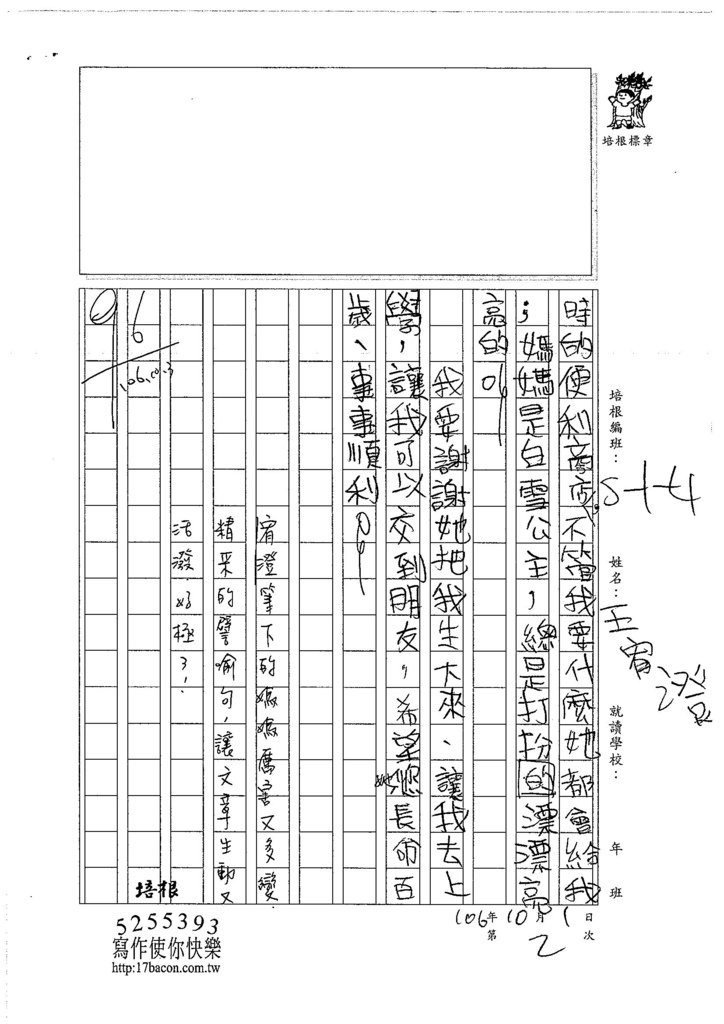 培根標章
培根編班：S+4
姓名：王宥澄
就讀學校：
年 班
106年10月1日
第2次
時的便利商店，不管我要什麼她都會給我
；媽媽是白雪公主，總是打扮的漂漂亮
亮的。
我要謝謝她把我生下來、讓我去上
學，讓我可以交到朋友，希望您長命百
她
歲、事事順利。
宥澄筆下的媽媽厲害又多變，
精采的譬喻句，讓文章生動又
活潑，好極了！
96
106.10.3
培根
5255393
寫作使你快樂
http:17bacon.com.tw